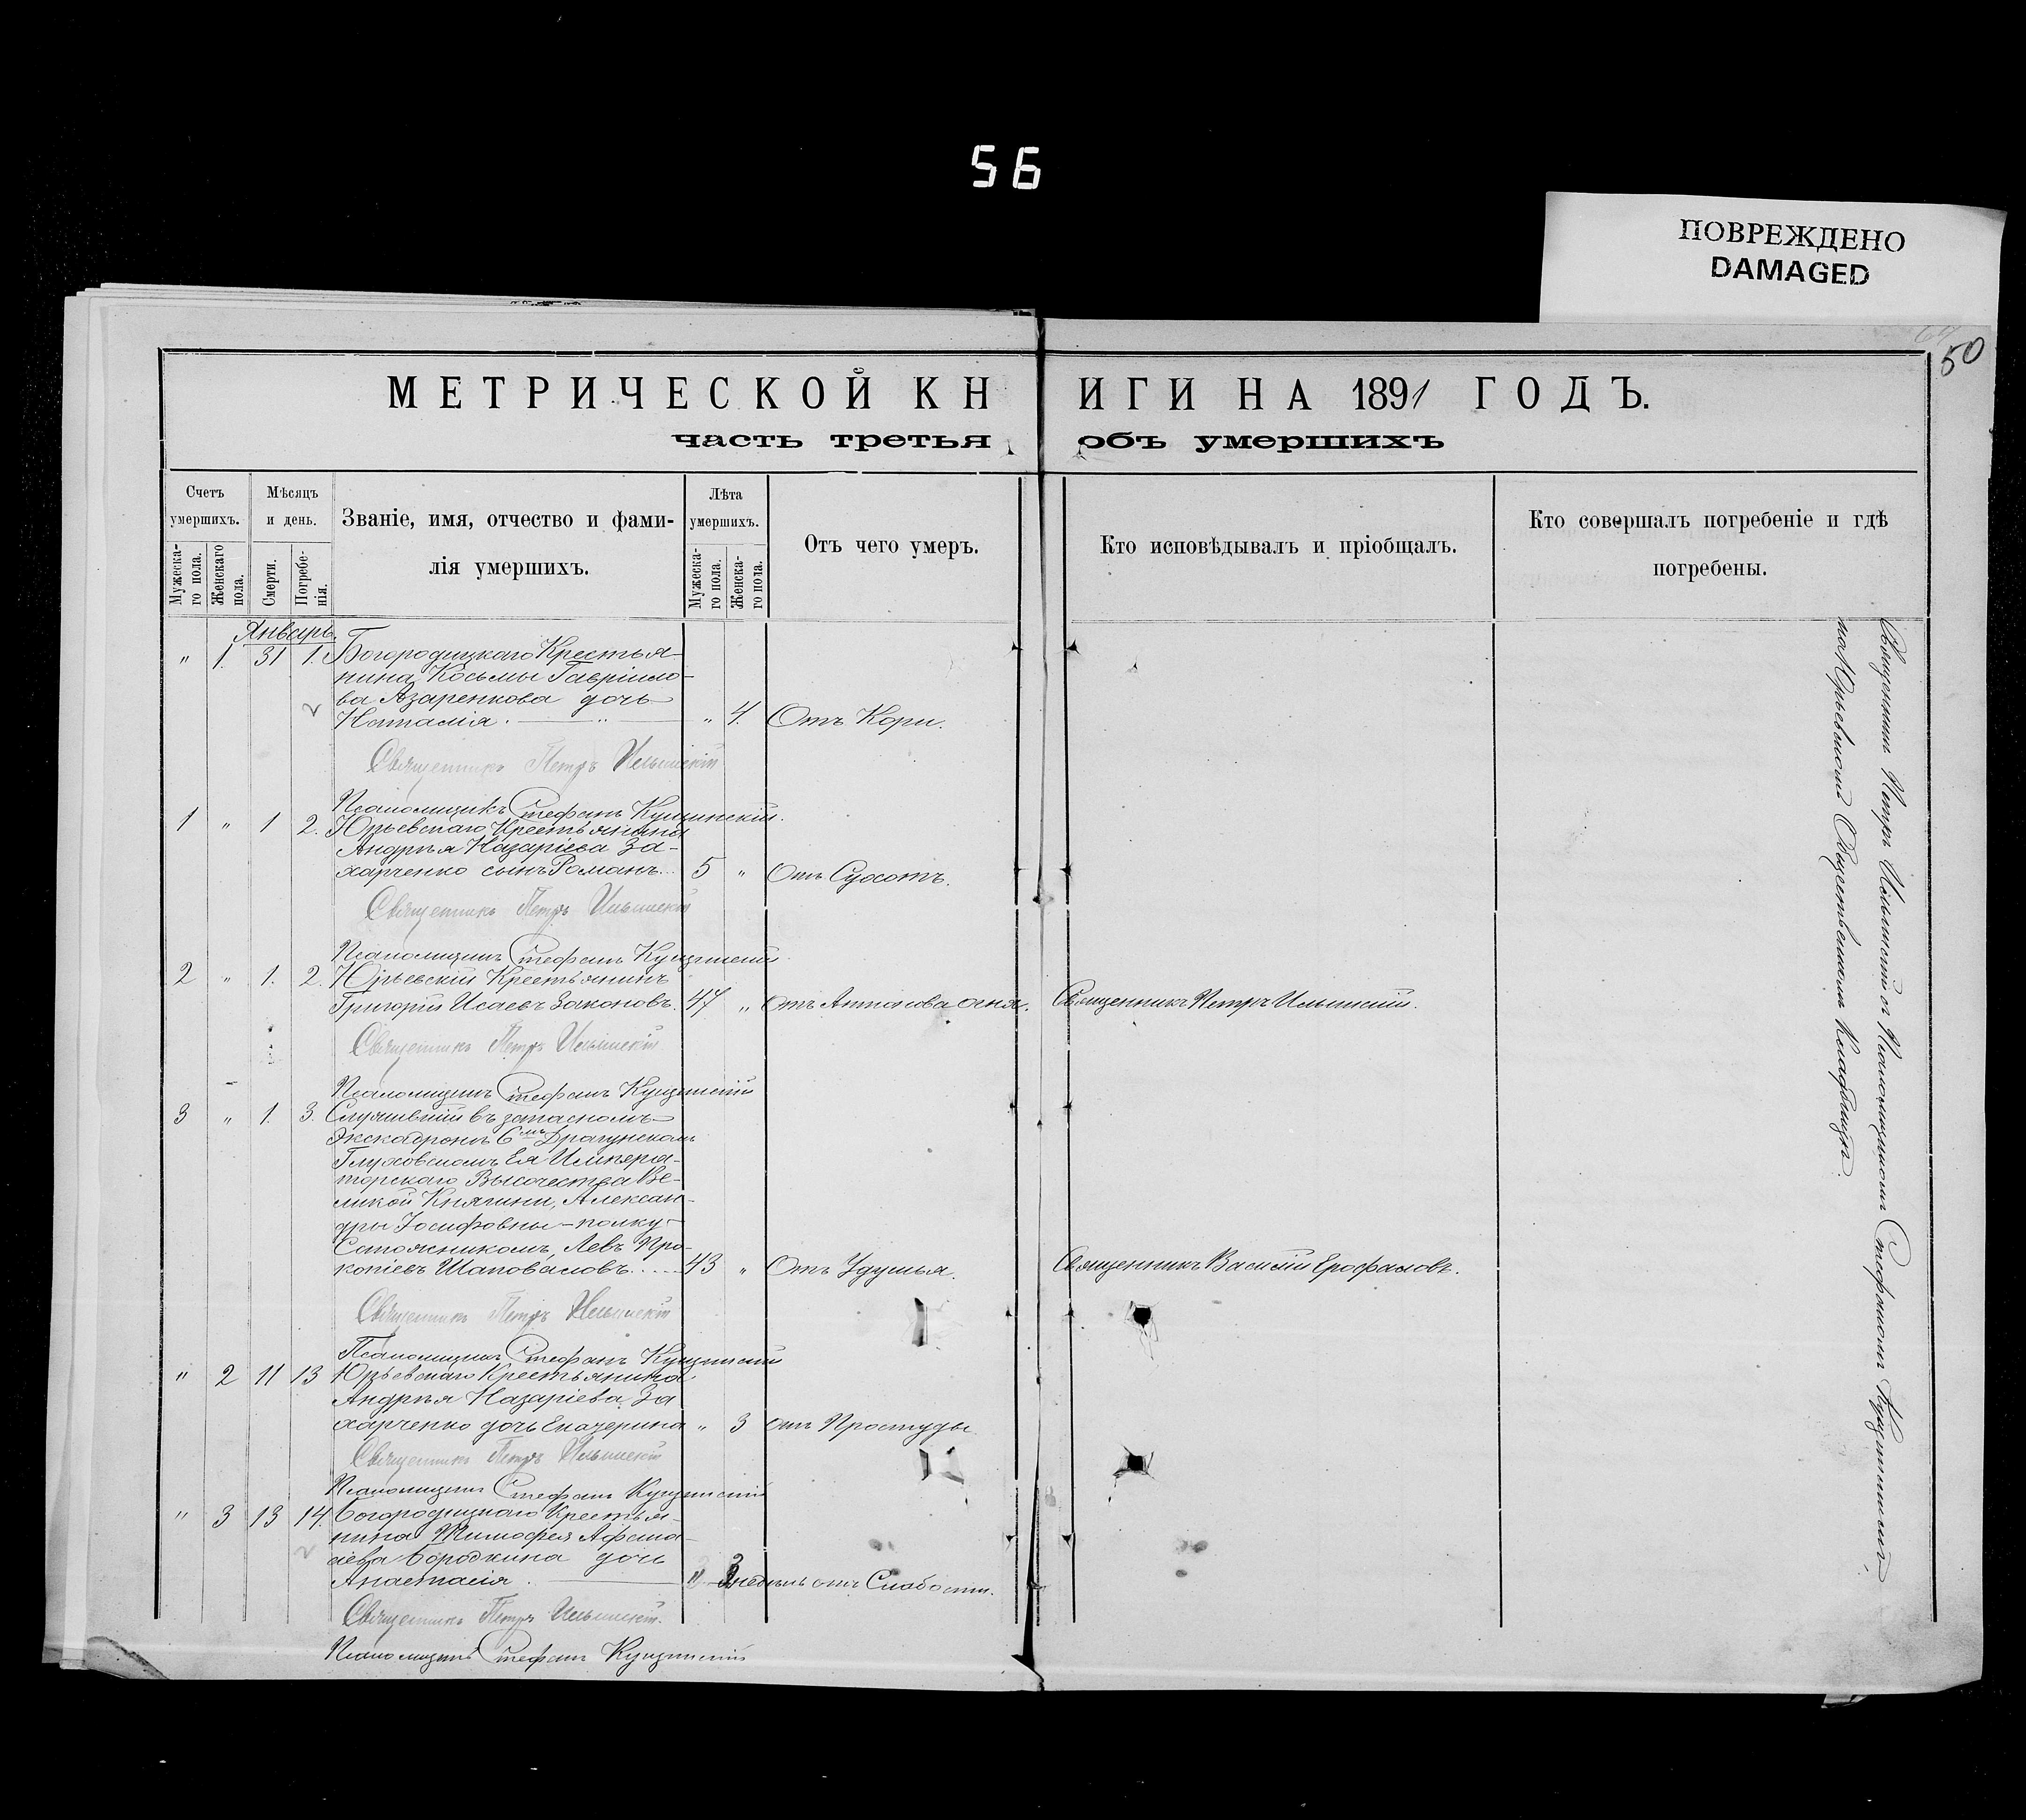 56
ПОВРЕЖДЕНО
DAMAGED
50
МЕТРИЧЕСКОЙ КНИГИ НА 1891 ГОДЪ.
часть третья объ умершихъ
Счетъ умершихъ.
Мужеска-го пола.
Женскаго пола.
Мѣсяцъ и день.
Смерти.
Погребе-нія.
Званіе, имя, отчество и фами-
лія умершихъ.
Лѣта умершихъ.
Мужеска-го пола.
Женска-го пола.
Отъ чего умеръ.
Кто исповѣдывалъ и пріобщалъ.
Кто совершалъ погребеніе и гдѣ
погребены.
Январь.
" 1. 31 1. Богородицкаго Крестья-
нина Косьмы Гавріило-
ва Азаренкова дочь
Наталія. " 4. Отъ Кори.
Священникъ Петръ Ильинскій
Псаломщикъ Стефанъ Кущинскій.
1 " 1 2. Юрьевскаго Крестьянина
Андрея Назаріева За-
харченко сынъ Романъ... 5 " Отъ Сухотъ.
Священникъ Петръ Ильинскій
Псаломщикъ Стефанъ Кущинскій
2 " 1. 2. Юрьевскій Крестьянинъ
Григорій Исаевъ Законовъ. 47 " Отъ Антонова огня. Священникъ Петръ Ильинскій.
Священникъ Петръ Ильинскій
Псаломщикъ Стефанъ Кущинскій
3 " 1. 3. Служившій въ запасномъ
Эскадронѣ 6мъ Драгунскомъ
Глуховскомъ Ея Импера-
торскаго Высочества Ве-
ликой Княгини, Алексан-
дры Іосифовны - полку -
Сапожникомъ, Левъ Про-
копіевъ Шаповаловъ..... 43 " Отъ Удушья. Священникъ Василій Ерофаловъ.
Священникъ Петръ Ильинскій
Псаломщикъ Стефанъ Кущинскій
" 2 11 13 Юрьевскаго Крестьянина
Андрея Назаріева За
харченко дочь Екатерина " 3 отъ Простуды
Священникъ Петръ Ильинскій
Псаломщикъ Стефанъ Кущинскій
" 3 13 14. Богородицкаго Крестья-
нина Тимофея Афана-
сіева Бородкина дочь
Анастасія. " 3 недѣль отъ Слабости.
Священникъ Петръ Ильинскій.
Псаломщикъ Стефанъ Кущинскій
Священникъ Петръ Ильинскій съ Псаломщикомъ Стефаномъ Кущинскимъ,
на Юрьевскомъ Общественномъ Кладбищѣ.